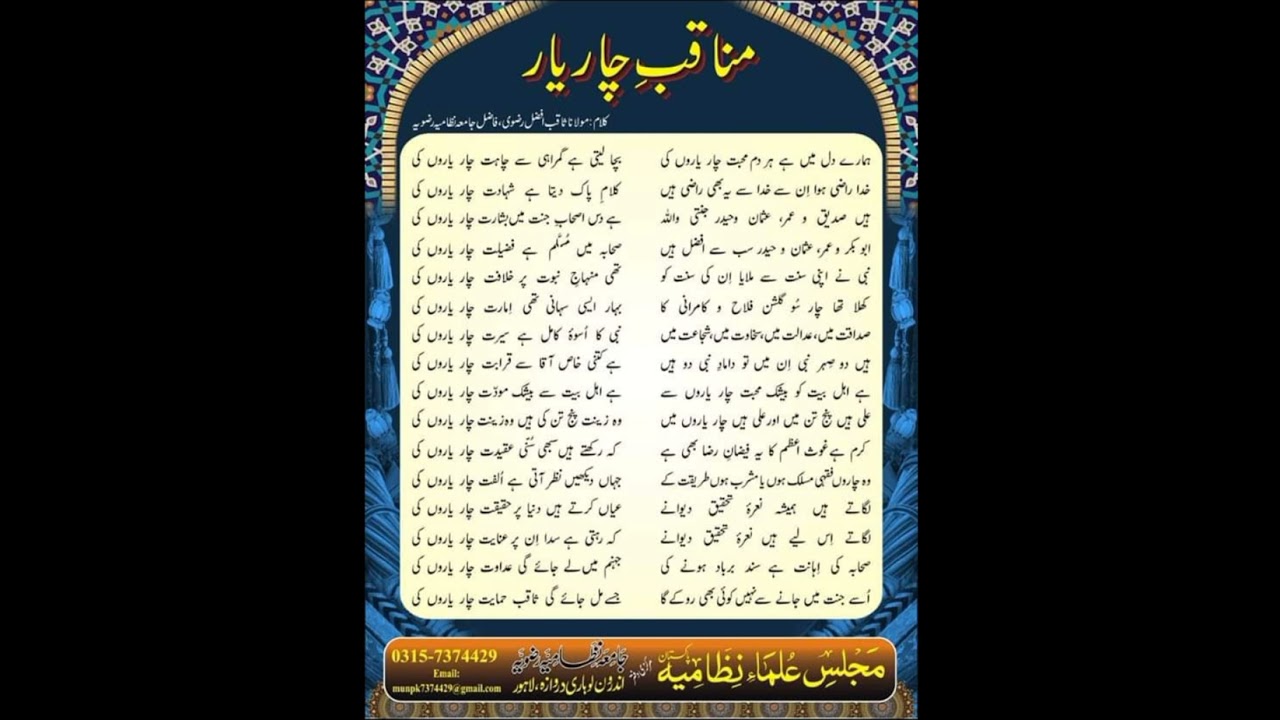 مناقبِ چار یار
کلام: مولانا ثاقب افضل رضوی، فاضل جامعہ نظامیہ رضویہ
ہمارے دل میں ہے ہر دم محبت چار یاروں کی بچا لیتی ہے گمراہی سے چاہت چار یاروں کی
خدا راضی ہوا اِن سے خدا سے یہ بھی راضی ہیں کلامِ پاک دیتا ہے شہادت چار یاروں کی
ہیں صدیق و عمر، عثمان وحیدر جنتی واللہ ہے دس اصحابِ جنت میں بشارت چار یاروں کی
ابو بکر و عمر، عثمان و حیدر سب سے افضل ہیں صحابہ میں مُسلَّم ہے فضیلت چار یاروں کی
نبی نے اپنی سنت سے ملایا اِن کی سنت کو تھی منہاجِ نبوت پر خلافت چار یاروں کی
کھلا تھا چار سُو گلشن فلاح و کامرانی کا بہار ایسی سہانی تھی اِمارت چار یاروں کی
صداقت میں، عدالت میں، سخاوت میں، شجاعت میں نبی کا اُسوۂ کامل ہے سیرت چار یاروں کی
ہیں دو صِہرِ نبی اِن میں تو دامادِ نبی دو ہیں ہے کتنی خاص آقا سے قرابت چار یاروں کی
ہے اہل بیت کو بیشک محبت چار یاروں سے ہے اہل بیت سے بیشک مودّت چار یاروں کی
علی ہیں پنج تن میں اور علی ہیں چار یاروں میں وہ زینت پنج تن کی ہیں وہ زینت چار یاروں کی
کرم ہے غوث اعظم کا یہ فیضانِ رضا بھی ہے کہ رکھتے ہیں سبھی سُنّی عقیدت چار یاروں کی
وہ چاروں فقہی مسلک ہوں یا مشرب ہوں طریقت کے جہاں دیکھیں نظر آتی ہے اُلفت چار یاروں کی
لگاتے ہیں ہمیشہ نعرۂ تحقیق دیوانے عیاں کرتے ہیں دنیا پر حقیقت چار یاروں کی
لگاتے اِس لیے ہیں نعرۂ تحقیق دیوانے کہ رہتی ہے سدا اِن پر عنایت چار یاروں کی
صحابہ کی اِہانت ہے سند برباد ہونے کی جہنم میں لے جائے گی عداوت چار یاروں کی
اُسے جنت میں جانے سے نہیں کوئی بھی روکے گا جسے مل جائے گی ثاقب حمایت چار یاروں کی
مَجلسِ عُلماءِ نِظامیہ پاکستان
جامعہ نظامیہ رضویہ
اندرون لوہاری دروازہ، لاہور
0315-7374429
Email:
munpk7374429@gmail.com